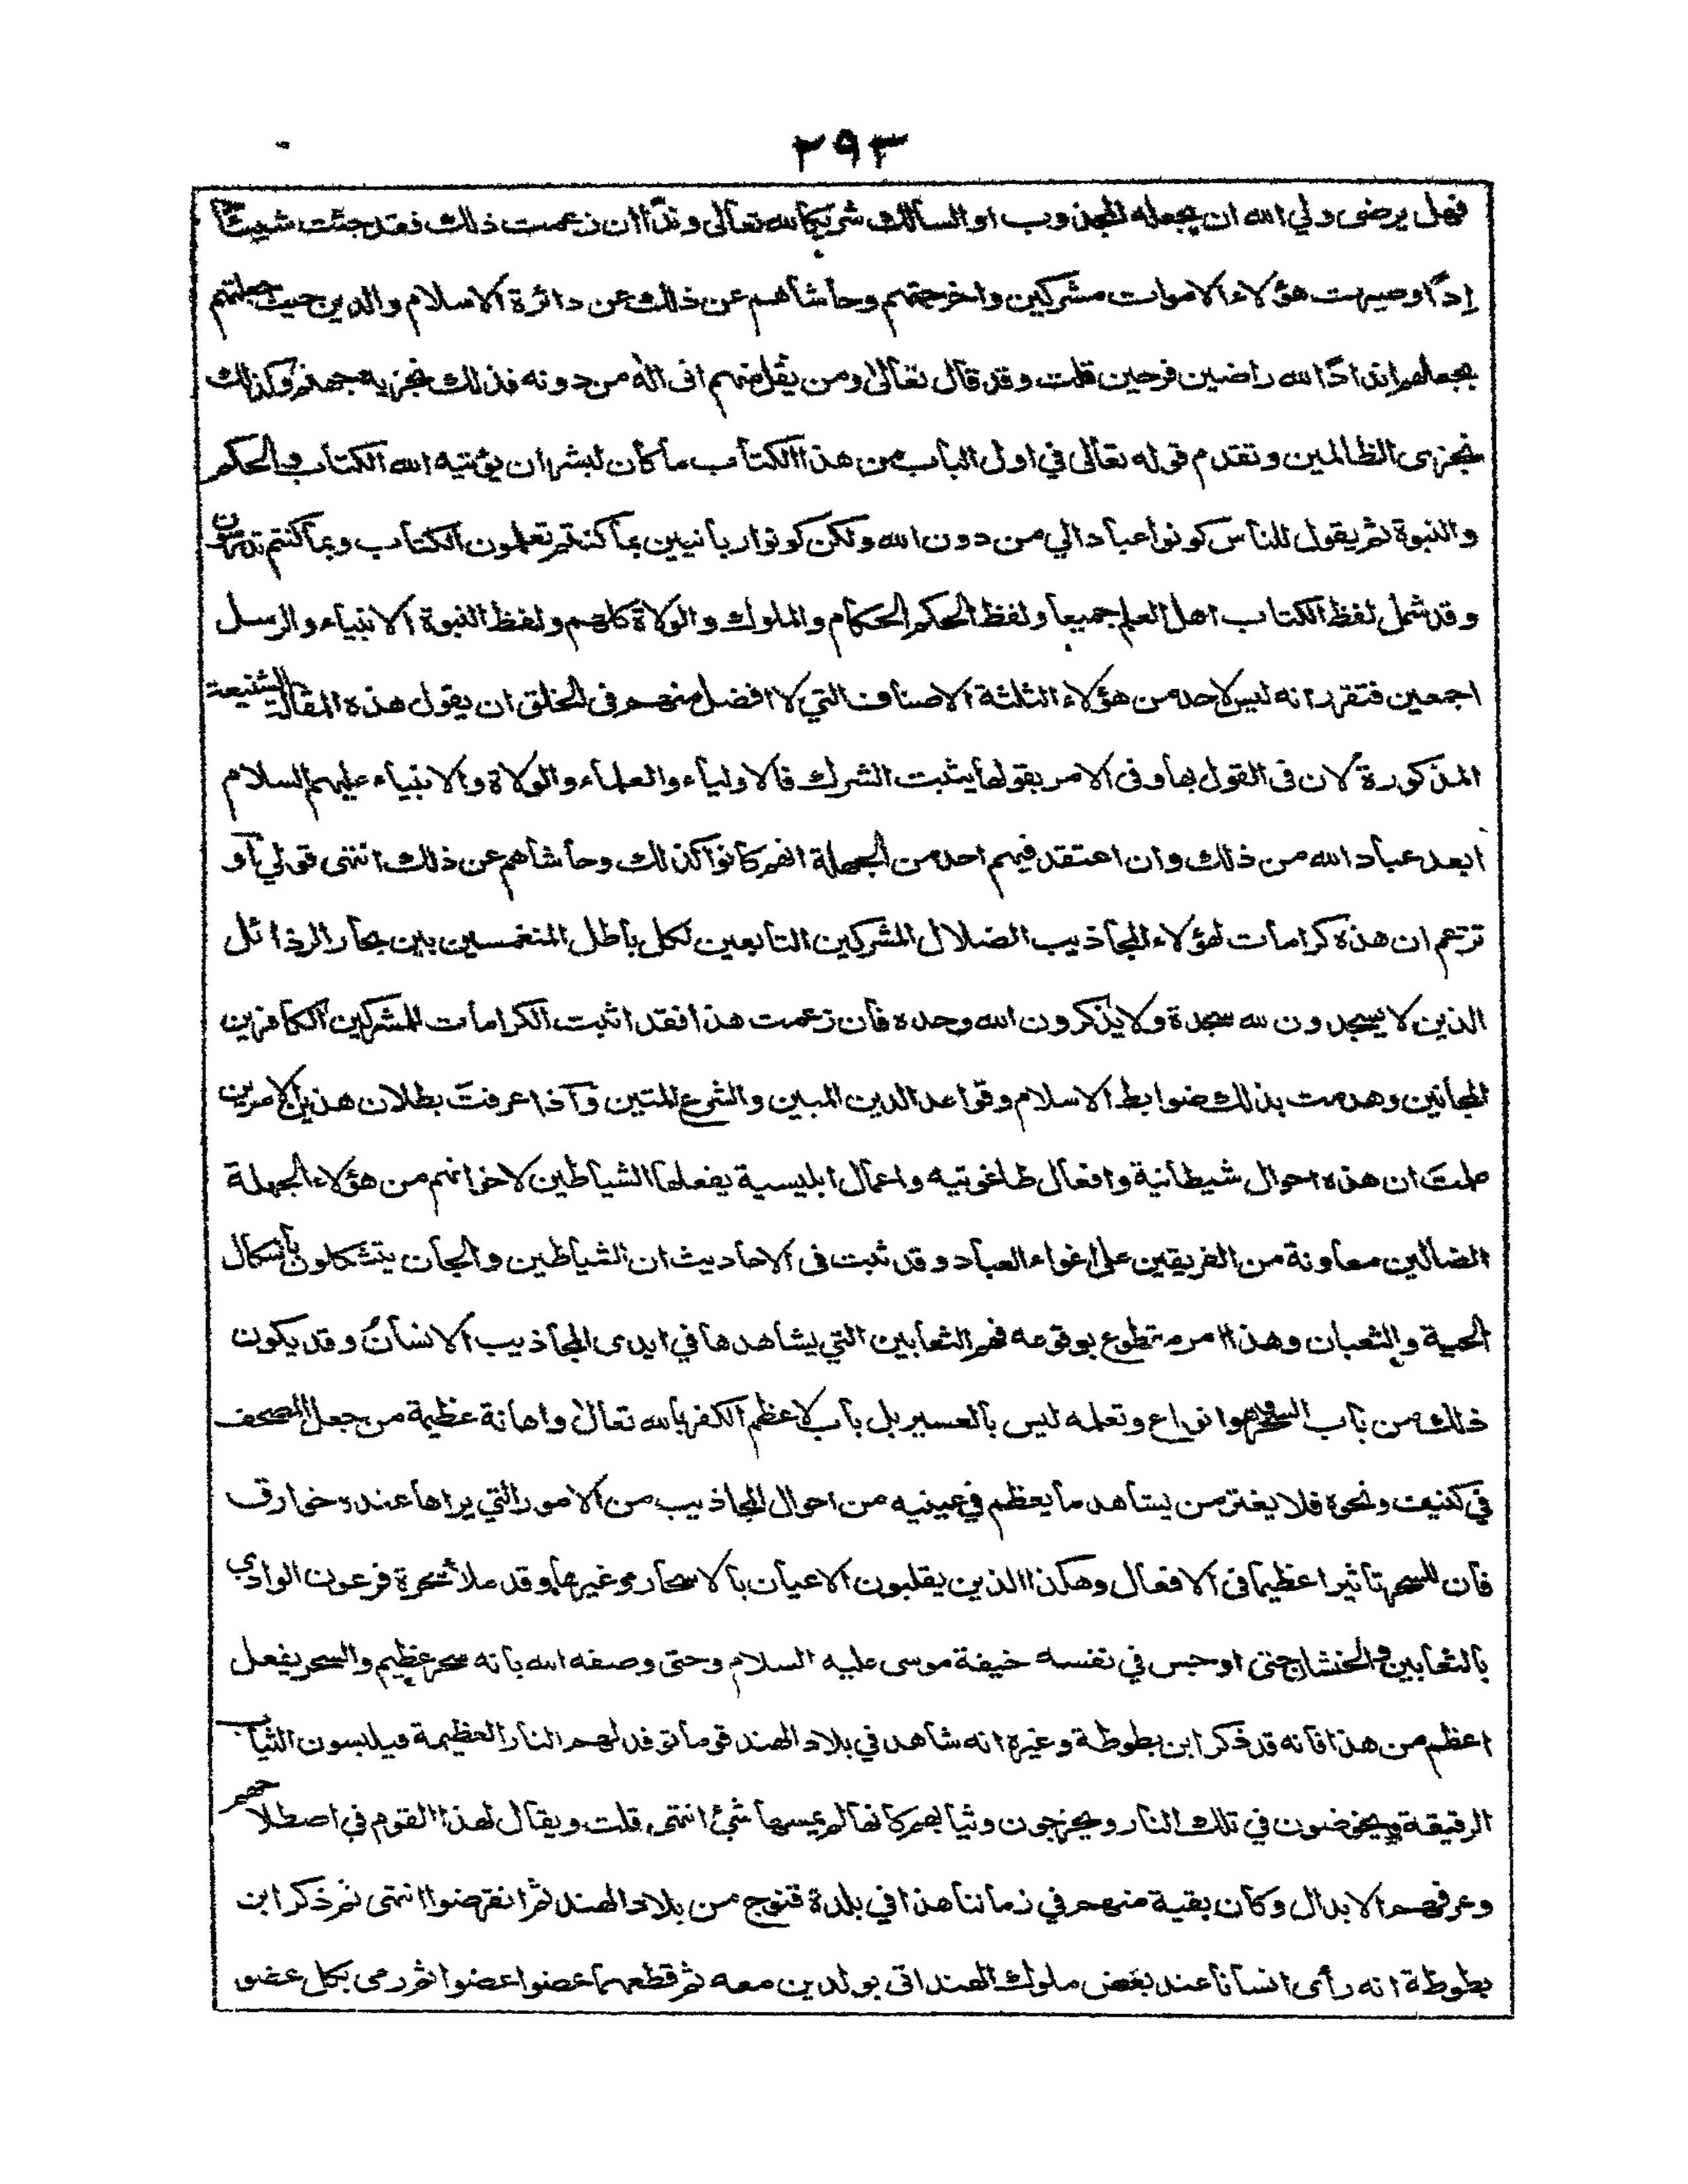 ٢٩٣
فهل يرضى ولي الله ان يجعله المجذوب او السالك شريكا لله تعالى وندّا ان زعمت ذلك فقد جئت شيئًا
إدًّا وصيرت هؤلاء الاموات مشركين واخرجتهم وحاشاهم عن ذلك عن دائرة الاسلام والدين حيث جعلتهم
بجعلهم اندادًا لله راضين فرحين قلت وقد قال تعالى ومن يقل منهم انى اله من دونه فذلك نجزيه جهنم وكذلك
نجزى الظالمين وتقدم قوله تعالى في اول الباب من هذا الكتاب ما كان لبشر ان يؤتيه الله الكتاب والحكم
والنبوة ثم يقول للناس كونوا عبادا لي من دون الله ولكن كونوا ربانيين بما كنتم تعلمون الكتاب وبما كنتم تدرسون
وقد شمل لفظ الكتاب اهل العلم جميعا ولفظ الحكم الحكام والملوك والولاة كلهم ولفظ النبوة الانبياء والرسل
اجمعين فتقرر انه ليس لاحد من هؤلاء الثلثة الاصناف التي لا افضل منهم فى الخلق ان يقول هذه المقالة الشنيعة
المذكورة لان فى القول بها وفى الامر بقولها يثبت الشرك فالاولياء والعلماء والولاة والانبياء عليهم السلام
ابعد عباد الله من ذلك وان اعتقد فيهم احد من الجهلة انهم كانوا كذلك وحاشاهم عن ذلك انتهى قولي او
تزعم ان هذه كرامات لهؤلاء المجاذيب الضلال المشركين التابعين لكل باطل المنغمسين بين بحار الرذائل
الذين لا يسجدون لله سجدة ولا يذكرون الله وحده فان زعمت هذا فقد اثبت الكرامات للمشركين الكافرين
المجانين وهدمت بذلك ضوابط الاسلام وقواعد الدين المبين والشرع المتين وآذا عرفت بطلان هذين الامرين
علمت ان هذه احوال شيطانية وافعال طاغوتيه واعمال ابليسية يفعلها الشياطين لاخوانهم من هؤلاء الجهلة
الضالين معاونة من الفريقين على اغواء العباد وقد ثبت فى الاحاديث ان الشياطين والجان يتشكلون باشكال
الحية والثعبان وهذا امر مقطوع بوقوعه فهم الثعابين التي يشاهدها في ايدى المجاذيب الانسان وقد يكون
ذلك من باب السحر وهو انواع وتعلمه ليس بالعسير بل باب لاعظم الكفر بالله تعالى واهانة عظيمة من جعل المصحف
في كنيف ونحوه فلا يغتر من يشاهد ما يعظم في عينيه من احوال المجاذيب من الامور التي يراها عنده خوارق
فان للسحر تاثيرا عظيما فى الافعال وهكذا الذين يقلبون الاعيان بالاسحار وغيرها وقد ملأ سحرة فرعون الوادي
بالثعابين والحنشان حتى اوجس في نفسه خيفة موسى عليه السلام وحتى وصفه الله بانه سحر عظيم والسحر يفعل
اعظم من هذا فانه قد ذكر ابن بطوطة وغيره انه شاهد في بلاد الهند قوما توقد لهم النار العظيمة فيلبسون الثياب
الرقيقة ويخوضون في تلك النار ويخرجون وثيابهم كانها لم يمسها شئ انتهى قلت ويقال لهذا القوم في اصطلاحهم
وعرفهم الابدال وكان بقية منهم في زماننا هذا في بلدة قنوج من بلاد الهند ثم انقرضوا انتهى ثم ذكر ابن
بطوطة انه رأى انسانا عند بعض ملوك الهند اتى بولدين معه ثم قطعهما عضوا عضوا ثم رمى بكل عضو